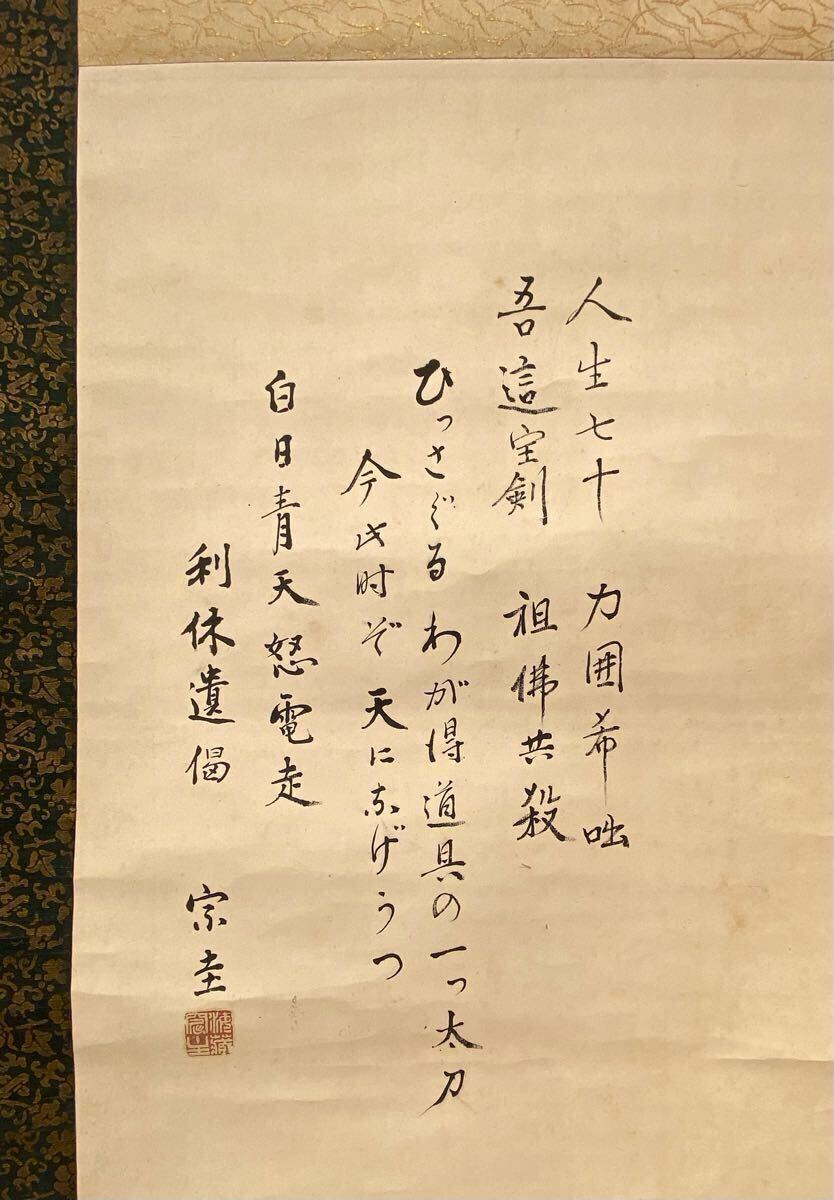 人生七十 力囲希咄
吾這宝剣 祖佛共殺
ひっさぐるわが得道具の一つ太刀
今此时ぞ天になげうつ
白日青天怒電走
利休遺偈 宗圭